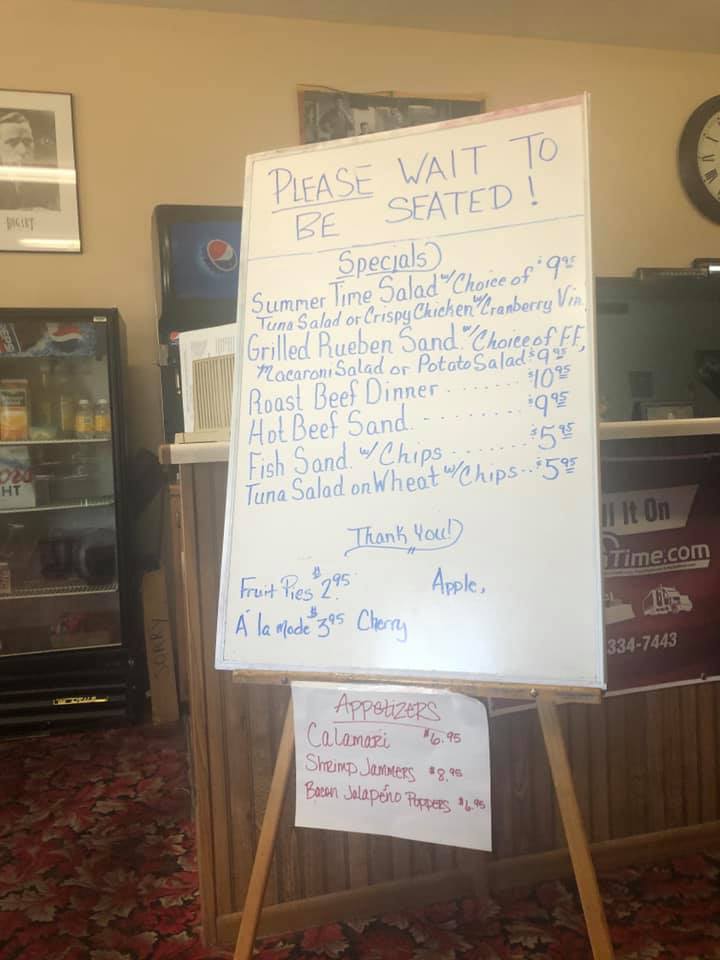 PLEASE WAIT TO
BE SEATED!
Specials
Summer Time Salad w/Choice of $9.95
Tuna Salad or Crispy Chicken w/Cranberry Vin.
Grilled Rueben Sand. w/Choice of FF,
Macaroni Salad or Potato Salad $9.95
Roast Beef Dinner ....... $10.95
Hot Beef Sand. ........ $9.95
Fish Sand. w/Chips ....... $5.95
Tuna Salad on Wheat w/Chips.. $5.95
Thank You!
Fruit Pies $2.95 Apple,
A' la mode $3.95 Cherry
Appetizers
Calamari $6.95
Shrimp Jammers $8.95
Bacon Jalapeño Poppers $6.95
pepsi
SORRY
HT
ll It On
Time.com
334-7443